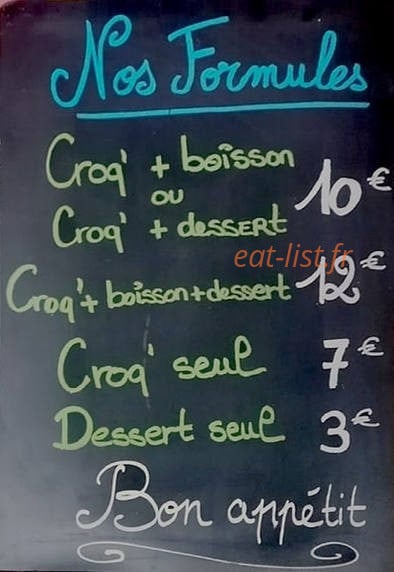 Nos Formules
Croq' + boisson
ou
10€
Croq' + dessert
eat-list.fr
Croq'+ boisson+dessert 12€
Croq' seul 7€
Dessert seul 3€
Bon appétit